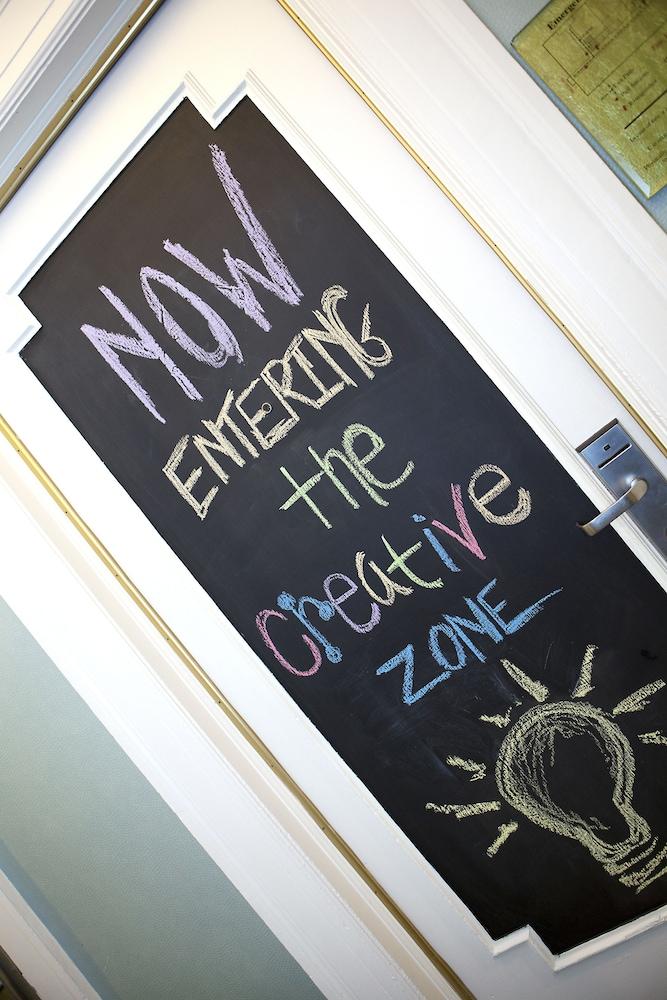 NOW
ENTERING
the
creative
ZONE
Emergen